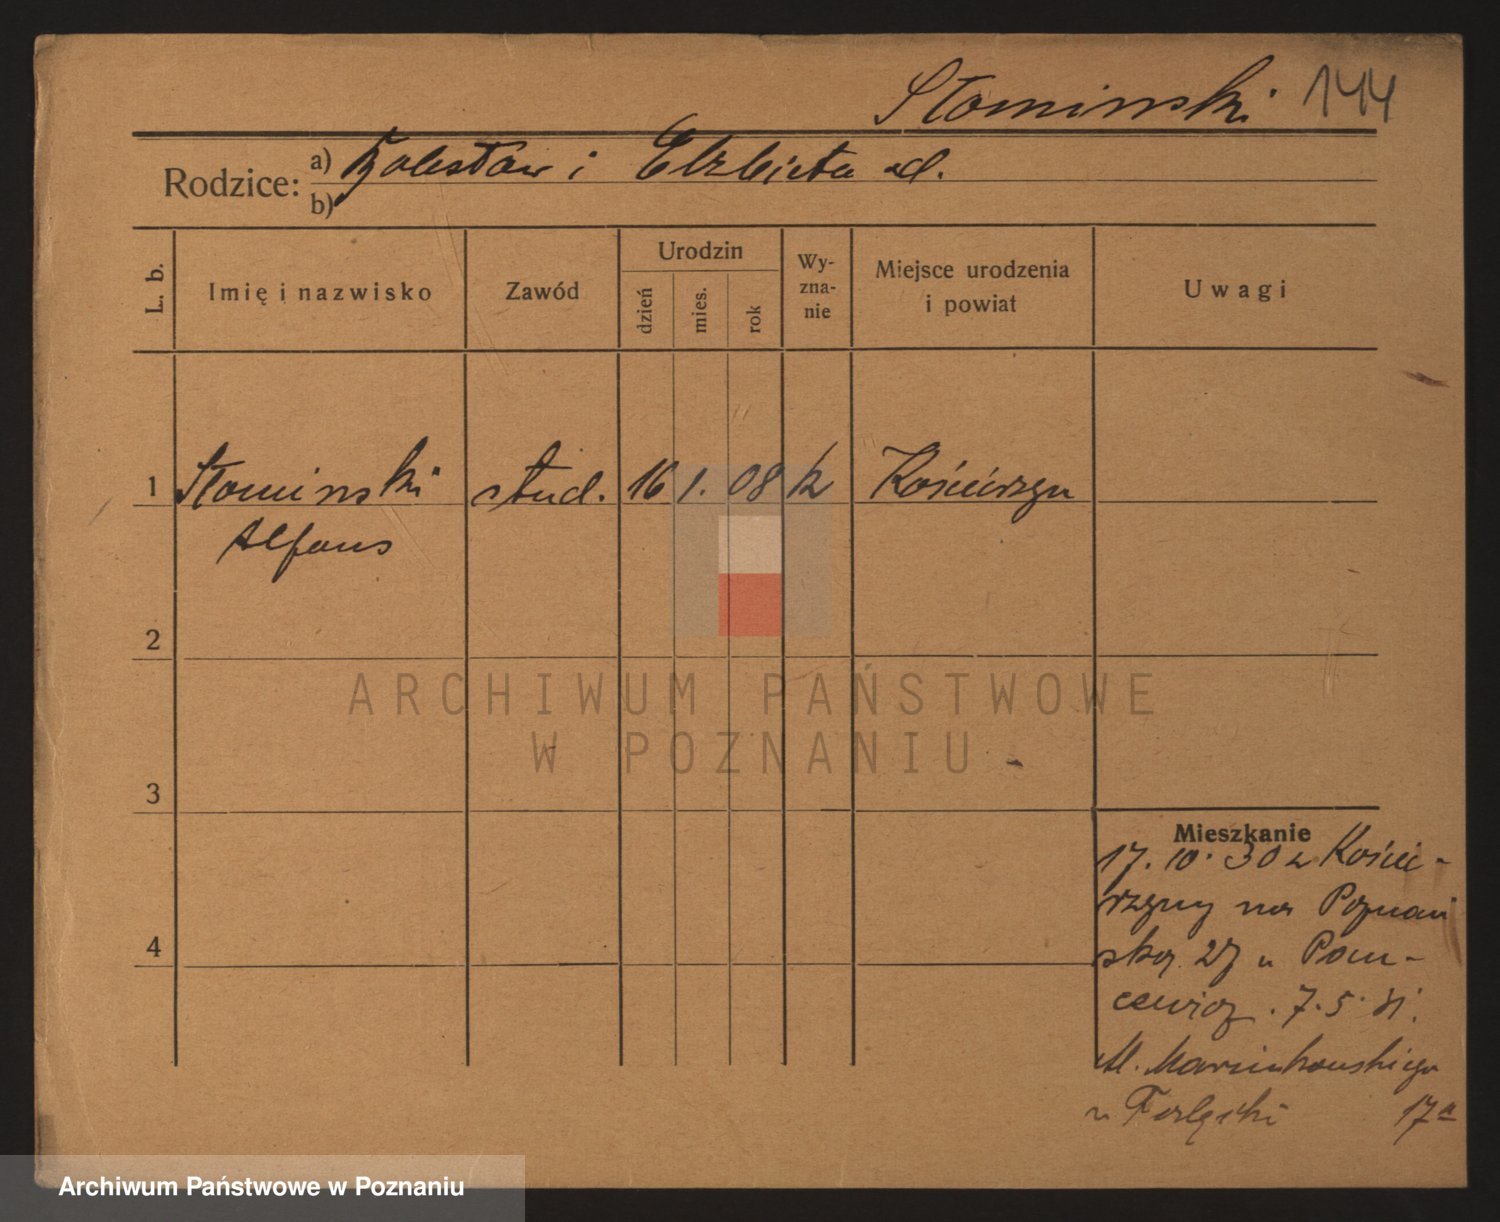 Słominski 144
Rodzice: a) Bolesław i Elżbieta d.
b)
L. b.
Imię i nazwisko
Zawód
Urodzin
dzień
mies.
rok
Wy-
zna-
nie
Miejsce urodzenia
i powiat
Uwagi
1 Słominski stud. 16 1. 08 k Kościerzyn
Alfons
2
3
4
Mieszkanie
17. 10. 30 z Kości-
erzyny na Poznań
ską 27 u
7. 5. 31.
Al. Marcinkowskiego
u 17a
ARCHIWUM PAŃSTWOWE
W POZNANIU
Archiwum Państwowe w Poznaniu